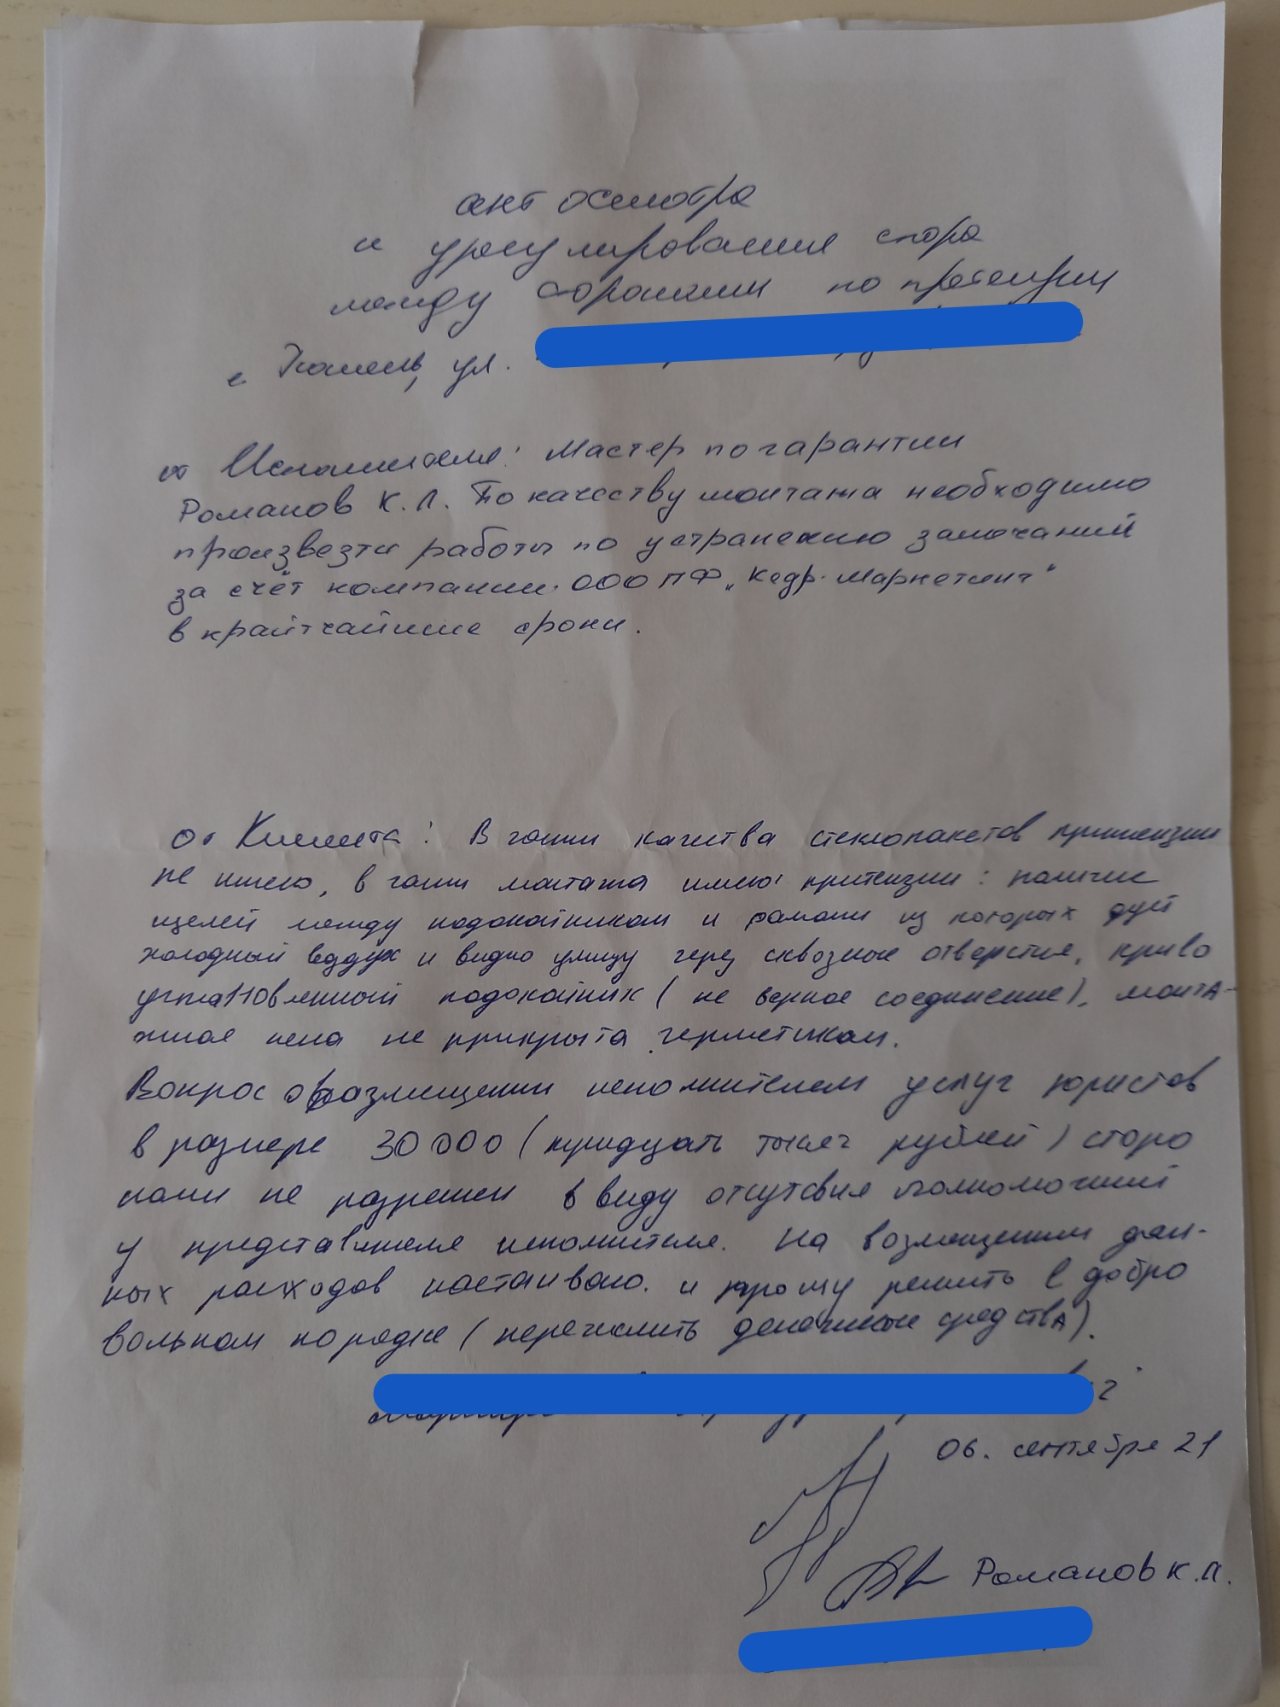 акт осмотра
и урегулирования спора
между сторонами по претензии
г. Тюмень, ул.
от Исполнителя: Мастер по гарантии
Романов К.Л. По качеству монтажа необходимо
произвезти работы по устранению замечаний
за счёт компании. ООО ПФ „Кедр-Маркетинг"
в крайтчайшие сроки.
От Клиента: В части качества стеклопакетов притензии
не имею, в части монтажа имею притензии: наличие
щелей между подоконником и рамами из которых дует
холодный воздух и видно улицу через сквозные отверстие, криво
установленный подоконник (не верное соединение), монта-
жная пена не прикрыта герметиком.
Вопрос о возмещении исполнителем услуг юристов
в размере 30 000 (тридцать тысяч рублей) сторо
нами не разрешен в виду отсутсвия полномочий
у представителя исполнителя. На возмещении дан-
ных расходов настаиваю. и прошу решить в добро
вольном порядке (перечислить денежные средства).
06. сентября 21
Романов К.Л.